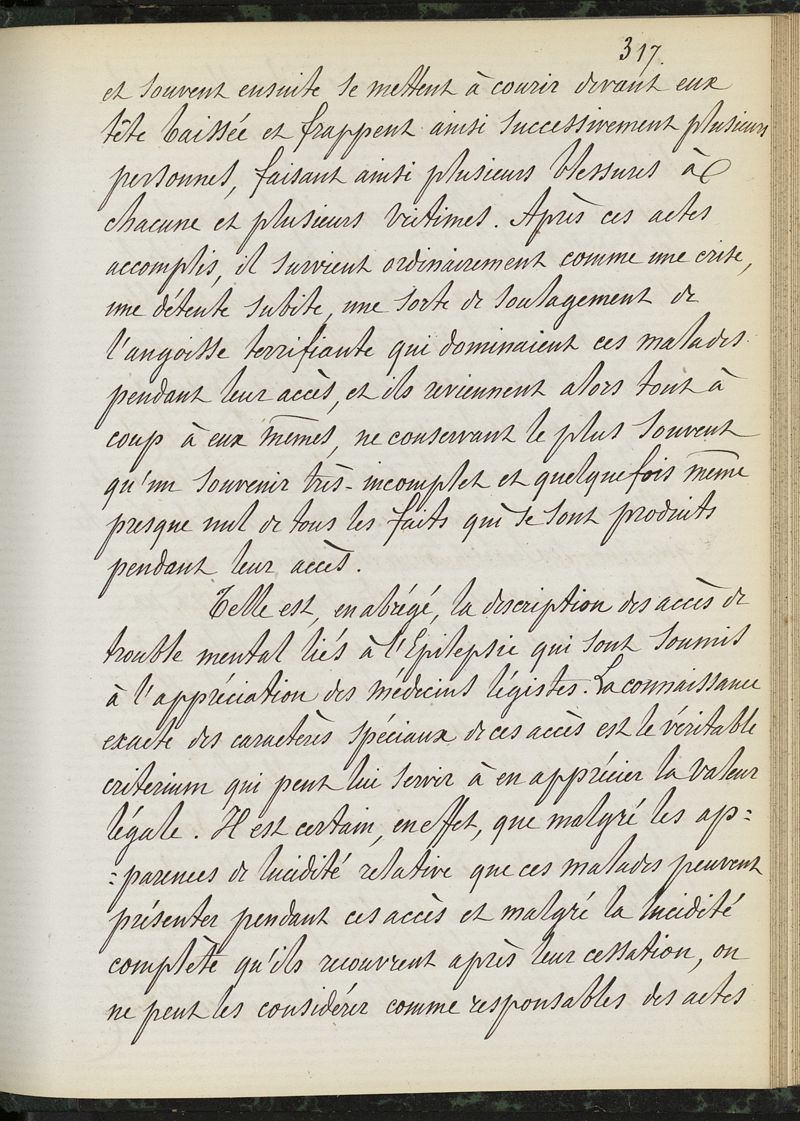 317.
et souvent ensuite se mettent à courir devant eux
tête baissée et frappent ainsi successivement plusieurs
personnes, faisant ainsi plusieurs blessures à
chacune et plusieurs victimes. Après ces actes
accomplis, il survient ordinairement comme une crise,
une détente subite, une sorte de soulagement de
l'angoisse terrifiante qui dominaient ces malades
pendant leur accès, et ils reviennent alors tout à
coup à eux mêmes, ne conservant le plus souvent
qu'un souvenir très-incomplet et quelquefois même
presque nul de tous les faits qui se sont produits
pendant leur accès.
Telle est, en abrégé, la description des accès de
trouble mental liés à l'Epilepsie qui sont soumis
à l'appréciation des médecins légistes. La connaissance
exacte des caractères spéciaux de ces accès est le véritable
criterium qui peut lui servir à en apprécier la valeur
légale. Il est certain, en effet, que malgré les ap=
=parences de lucidité relative que ces malades peuvent
présenter pendant ces accès et malgré la lucidité
complète qu'ils recouvrent après leur cessation, on
ne peut les considérer comme responsables des actes